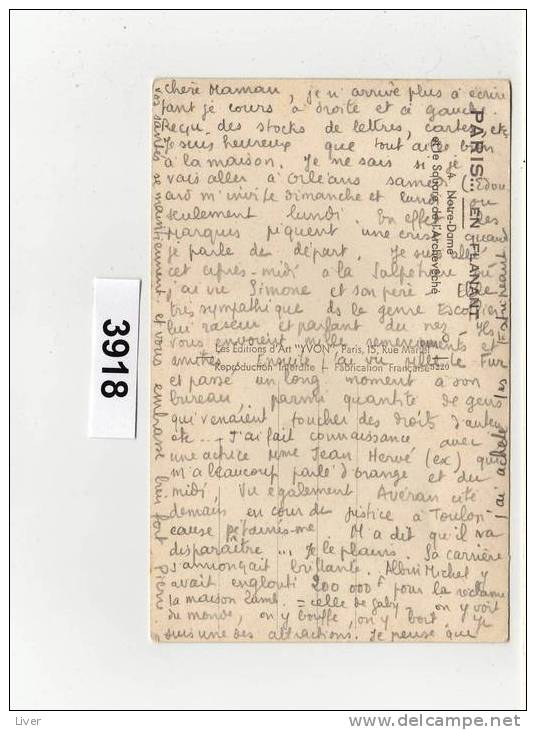 chère Maman, je n'arrive plus à écrire
tant je cours à droite et à gauche.
Reçu des stocks de lettres, cartes, etc
Je suis heureux que tout aille bien
à la maison. Je ne sais si je
vais aller à Orléans samedi, Edou
ard m'invite dimanche et lundi ou
seulement lundi. En effet les
piquent une crise quand
je parle de départ. Je suis allé
cet après-midi à la Salpêtrière où
j'ai vu Simone et son père. Elle
très sympathique ds le genre
lui raseur et parlant du nez. Ils
vous envoient mille remerciements et
amitiés. Ensuite j'ai vu
et passé un long moment à son
bureau, parmi quantité de gens
qui venaient toucher des droits d'auteur
etc... J'ai fait connaissance avec
une actrice Mme Jean Hervé (ex) qui
m'a beaucoup parlé d'orange et du
midi. Vu également Avéran cité
demain en cour de justice à Toulon
cause M'a dit qu'il va
disparaître ... Je le plains. Sa carrière
s'annonçait brillante. Albin Michel y
avait englouti 200 000 F pour la réclame
la maison Lamb. = celle de Gaby. On y voit
du monde, on y bouffe, on y boit. J'y
suis une des attractions. Je pense que
vos santés se maintiennent et vous embrasse bien fort Pierre
J'ai acheté les
PARIS... EN FLANANT
Notre-Dame
et le Square de l'Archevêché
Les Editions d'Art "YVON", Paris, 15, Rue Martel
Reproduction Interdite Fabrication Française
3918
Liver
www.delcampe.net